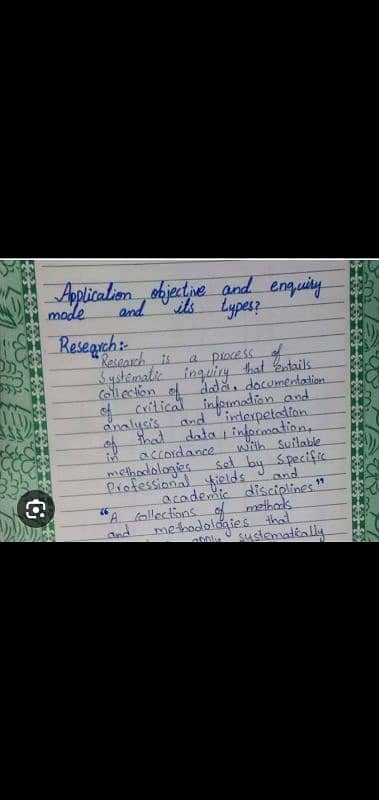 Application objective and enquiry
mode and its types?
Research:-
"Research is a process of
Systematic inquiry that entails
collection of data, documentation
of critical information and
analysis and interpetation
of that data, information,
in accordance with suitable
methodologies set by specific
Professional yields and
academic disciplines"
"A collections of methods
and methodologies that
apply systematically